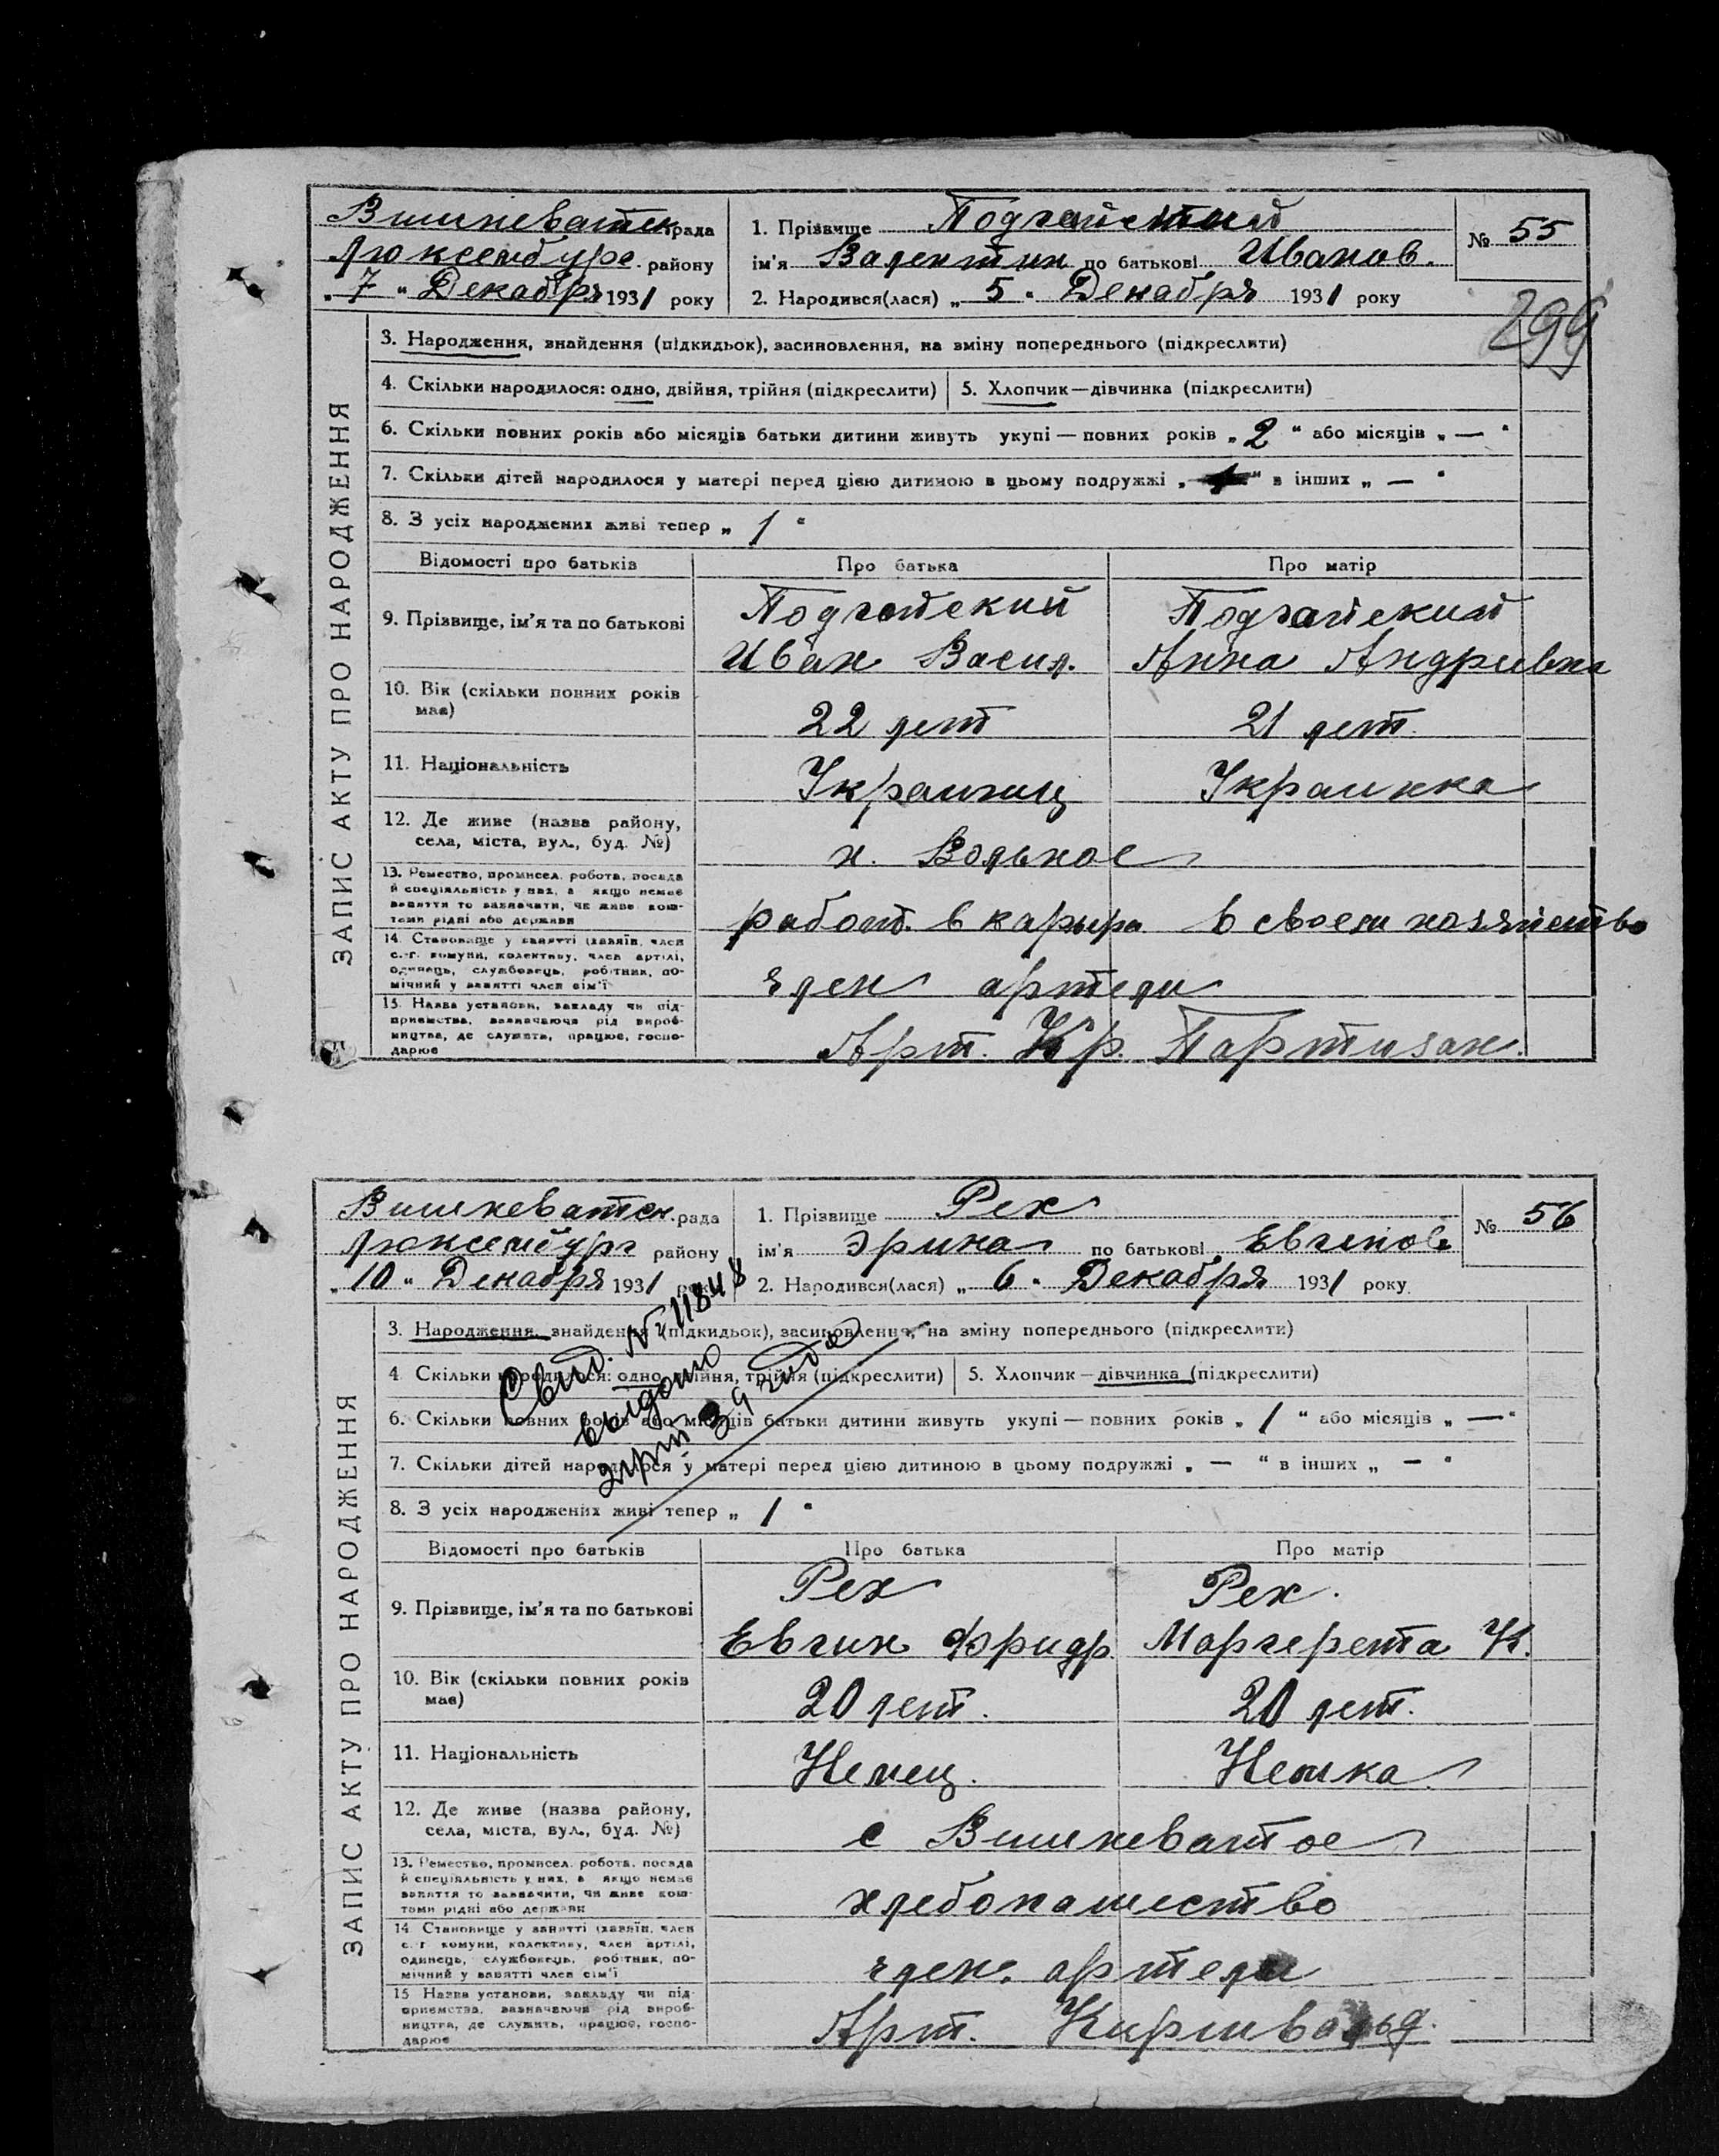 Вишневатск. рада
Люксембург. району
„ 7 " Декабря 1931 року
1. Прізвище Подгайский
ім'я Валентин по батькові Иванов.
2. Народився(лася) „ 5 " Декабря 1931 року
№ 55
299
ЗАПИС АКТУ ПРО НАРОДЖЕННЯ
3. Народження, знайдення (підкидьок), засиновлення, на зміну попереднього (підкреслити)
4. Скільки народилося: одно, двійня, трійня (підкреслити)
5. Хлопчик—дівчинка (підкреслити)
6. Скільки повних років або місяців батьки дитини живуть укупі — повних років „ 2 " або місяців „ — "
7. Скільки дітей народилося у матері перед цією дитиною в цьому подружжі „ " в інших „ — "
8. З усіх народжених живі тепер „ 1 "
Відомості про батьків
Про батька
Про матір
9. Прізвище, ім'я та по батькові
Подгайский
Иван Васил.
Подгайский
Анна Андривна
10. Вік (скільки повних років
має)
22 лет
21 лет.
11. Національність
Украинец
Украинка
12. Де живе (назва району,
села, міста, вул., буд. №)
х. Вольное
13. Ремество, промисел, робота, посада
й спеціяльність у них, а якщо немає
заняття то зазначити, чи живе кош-
тами рідні або держави
работ. в карьера в своем хозяйство
14. Становище у занятті (хазяїн, член
с.-г. комуни, колективу, член артілі,
одинець, службовець, робітник, по-
мічний у занятті член сім'ї
член артели
15. Назва установи, закладу чи під-
приємства, зазначаючи рід вироб-
ництва, де служить, працює, госпо-
дарює
Арт. Кр. Партизан.
Вишневатск. рада
Люксембург району
„ 10 " Декабря 1931 року
1. Прізвище Рех
ім'я Эрина по батькові Евгенов
2. Народився(лася) „ 6 " Декабря 1931 року
№ 56
Свид. № 11848
выдано
ЗАПИС АКТУ ПРО НАРОДЖЕННЯ
3. Народження, знайдення (підкидьок), засиновлення, на зміну попереднього (підкреслити)
4 Скільки народилося: одно, двійня, трійня (підкреслити)
5. Хлопчик—дівчинка (підкреслити)
6. Скільки повних років або місяців батьки дитини живуть укупі — повних років „ 1 " або місяців „ — "
7. Скільки дітей народилося у матері перед цією дитиною в цьому подружжі „ — " в інших „ — "
8. З усіх народжених живі тепер „ 1 "
Відомості про батьків
Про батька
Про матір
9. Прізвище, ім'я та по батькові
Рех
Евгин Фридр.
Рех.
Маргерета К.
10. Вік (скільки повних років
має)
20 лет.
20 лет.
11. Національність
Немец.
Немка
12. Де живе (назва району,
села, міста, вул., буд. №)
с Вишневатое
13. Ремество, промисел, робота, посада
й спеціяльність у них, а якщо немає
заняття то зазначити, чи живе кош-
тами рідні або держави
хлебопашество
14 Становище у занятті (хазяїн, член
с.-г комуни, колективу, член артілі,
одинець, службовець, робітник, по-
мічний у занятті член сім'ї
член. артели
15 Назва установи, закладу чи під-
приємства, зазначаючи рід вироб-
ництва, де служить, працює, госпо-
дарює
Арт. Киршвальд.